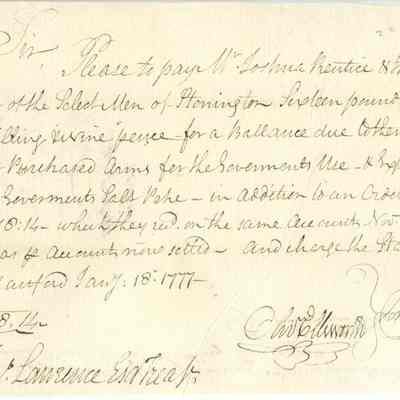 Sir,
Please to pay Mr. Joshua Prentice &
of the Select Men of Stonington Sixteen pound
& nine pence for a Ballance due to the
Purchased Arms for the Goverments Use - &
Goverments Salt Petre - in addition to an Order
18:14 - which they recd. on the same Accounts Nov.
as pr Accounts now settled - and charge the Sta
artford Jany. 18th 1777
8.14
Olivr Ellsworth
Lawrence Esqr Treasr